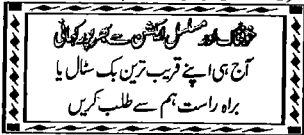 خوفناک اور مسلسل ایکشن سے بھرپور کہانی
آج ہی اپنے قریب ترین بک سٹال یا
براہ راست ہم سے طلب کریں